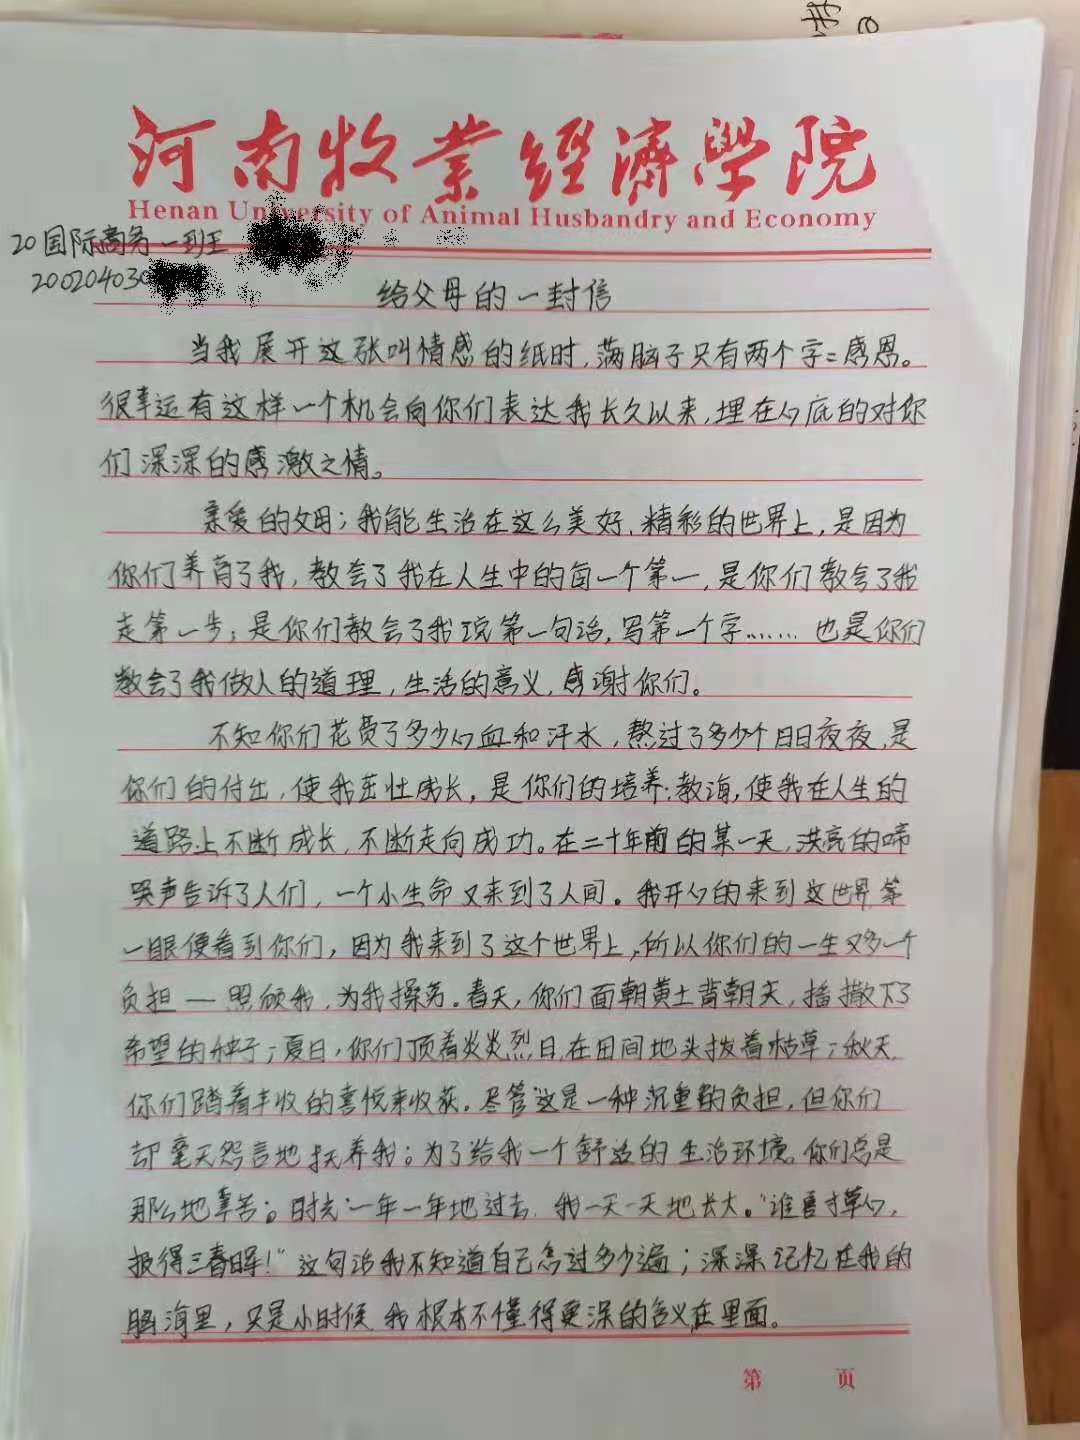 河南牧业经济学院
Henan University of Animal Husbandry and Economy
20国际商务一班
200204030
给父母的一封信
当我展开这张叫情感的纸时,满脑子只有两个字:感恩。
很幸运有这样一个机会向你们表达我长久以来,埋在心底的对你
们深深的感激之情。
亲爱的父母;我能生活在这么美好、精彩的世界上,是因为
你们养育了我,教会了我在人生中的每一个第一,是你们教会了我
走第一步;是你们教会了我说第一句话,写第一个字…… 也是你们
教会了我做人的道理,生活的意义,感谢你们。
不知你们花费了多少心血和汗水,熬过了多少个日日夜夜,是
你们的付出,使我茁壮成长,是你们的培养;教海,使我在人生的
道路上不断成长,不断走向成功。在二十年前的某一天,洪亮的啼
哭声告诉了人们,一个小生命又来到了人间。我开心的来到这世界,第
一眼便看到你们,因为我来到了这个世界上,所以你们的一生又多一个
负担一照顾我,为我操劳。春天,你们面朝黄土背朝天,播撒下了
希望的种子;夏日,你们顶着炎炎烈日,在田间地头拔着枯草;秋天,
你们踏着丰收的喜悦来收获。尽管这是一种沉重的负担,但你们
却毫无怨言地抚养我;为了给我一个舒适的生活环境,你们总是
那么地辛苦。时光一年一年地过去,我一天一天地长大。"谁言寸草心,
报得三春晖!"这句话我不知道自己念过多少遍;深深记忆在我的
脑海里,只是小时候我根本不懂得更深的含义在里面。
第 页